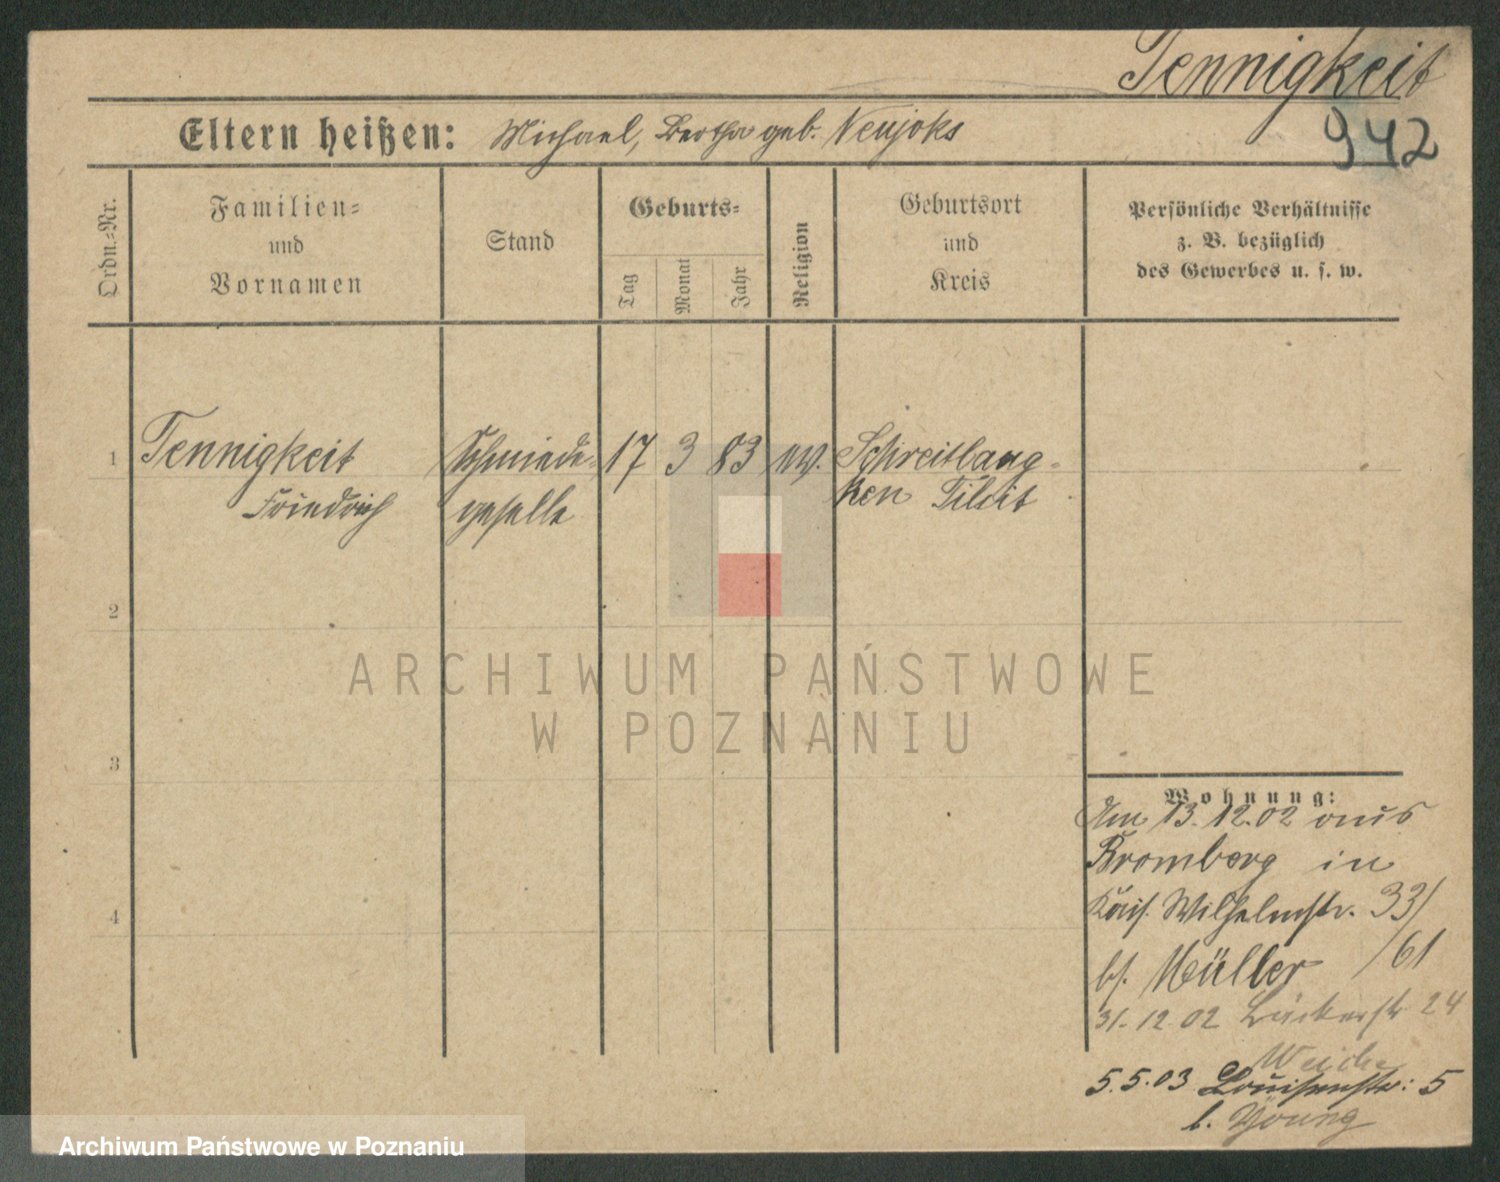 Tennigkeit
942
Eltern heißen: Michael, Bertha geb. Neujoks
Ordn.-Nr.
Familien-
und
Vornamen
Stand
Geburts-
Tag
Monat
Jahr
Religion
Geburtsort
und
Kreis
Persönliche Verhältnisse
z. B. bezüglich
des Gewerbes u. s. w.
1 Tennigkeit Schmiede- 17 3 83 ev. Schreitlaug-
Friedrich geselle ken Tilsit
2
ARCHIWUM PAŃSTWOWE
W POZNANIU
3
4
Wohnung:
Am 13.12.02 aus
Bromberg in
Kais. Wilhelmstr. 33/
b/. Müller /61
31.12.02 Bäckerstr 24
Weiche
5.5.03 Louisenstr: 5
b. Young
Archiwum Państwowe w Poznaniu